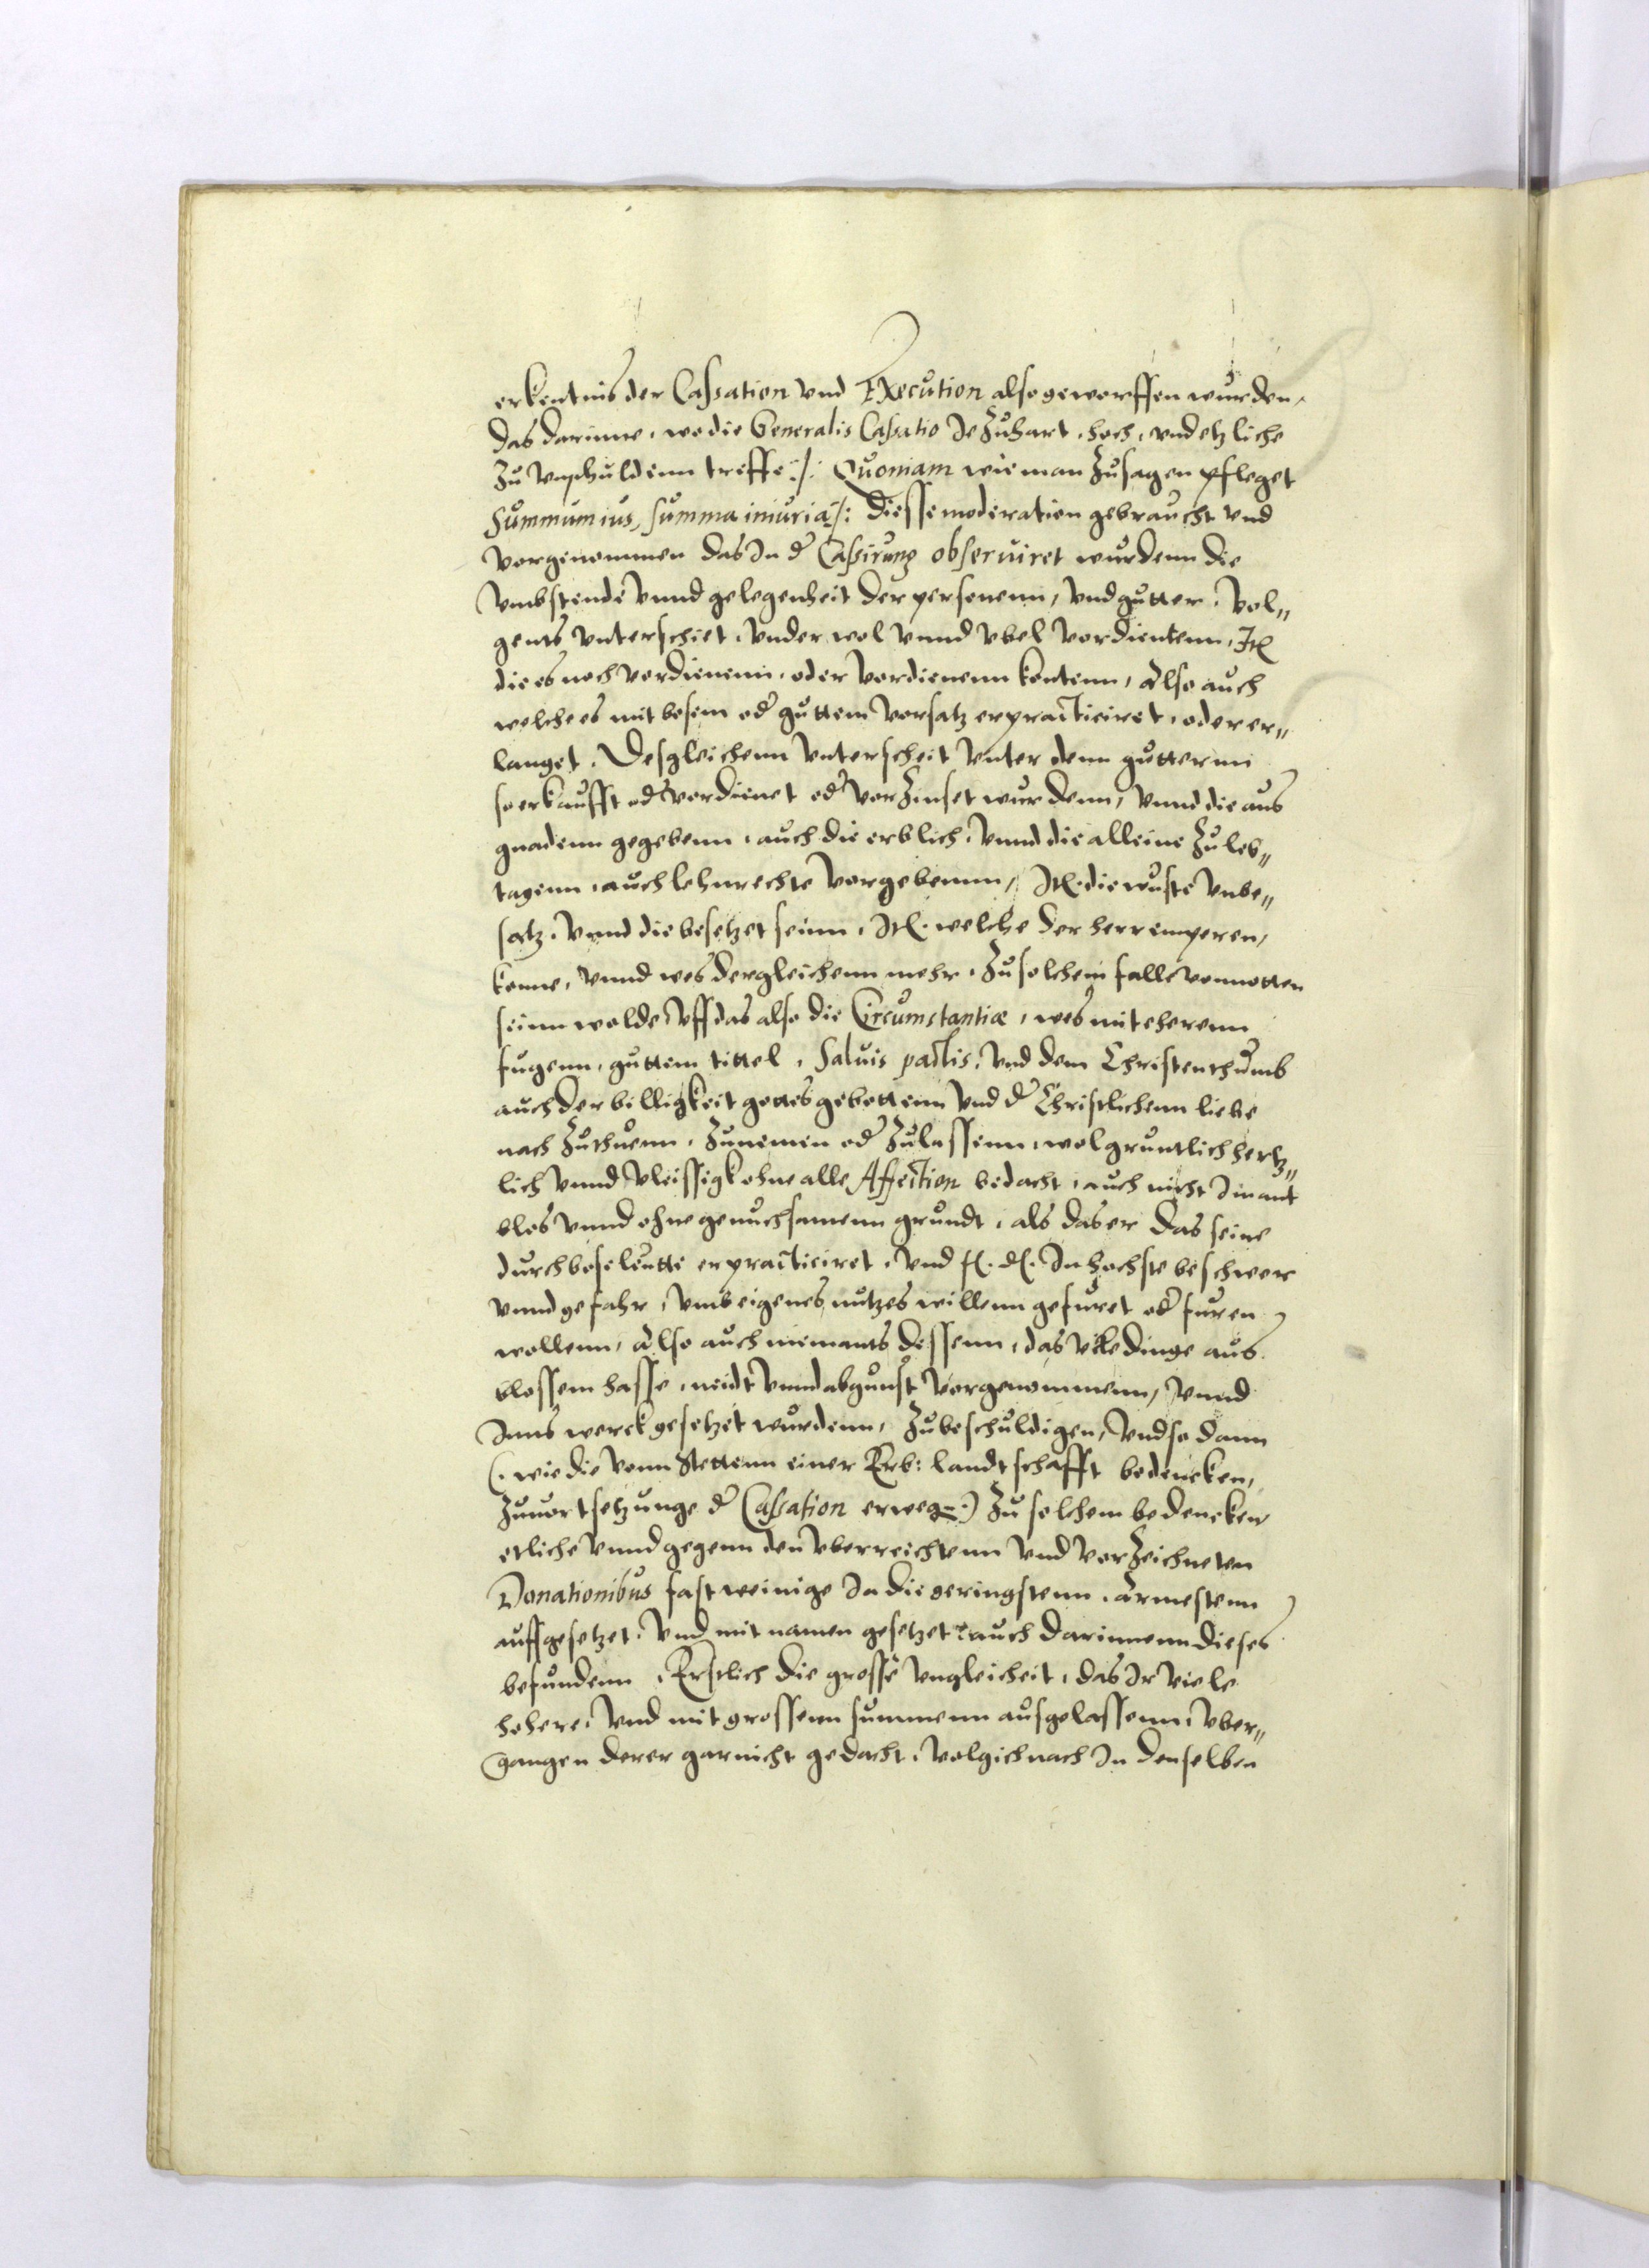 erkentnis der Cassation vnd Execution also geworffen wurden,
das darinne, wo die Generalis Cassatio Je zuhart, hoch, vnd etzliche
zu vnschuldenn treffe :/: Quoniam wie man zusagen pfleget
Summum ius, summa iniuria :/: diesse moderation gebraucht vnd
vorgenommen das In der Cassirung obseruiret wurdenn die
vmbstende vnnd gelegenheit der personenn, vnd gutter, vol„
gents vnterschiet, vnder wol vnnd vbel vordientenn, Itē
die es noch vordienenn, oder vordienenn kontenn, also auch
welche es mit bosem odr guttem vorsatz erpracticiret, oder er„
langet, Desgleichenn vnterscheit vnter denn gutternn
so erkaufft odr vordienet odr vorZinset wurdenn, vnnd die aus
gnadenn gegebenn, auch die erblich, vnnd die alleine zu leb„
tagenn, auch lehnrechte vorgebenn, Itē. die wuste vnbe„
satz, vnnd die besetzet seinn, Itē. welche der herr emperen,
konne, vnnd wes dergleichenn mehr, zu solchem falle vonnotten
seinn wolde, vff das also die Circumstantiæ, wes mit eherenn
fugenn, guttem tittel, Saluis pactis, vnd dem Christenthumb
auch der billigkeit gottes gebottenn vnd dr Christlichenn liebe
nach zuthuenn, zunemen odr zulassenn, wol gruntlich hertz„
lich vnnd vleissigk ohne alle Affection bedacht, auch nicht Imant
blos vnnd ohne genuchsamenn grundt, als das er das seine
durch bose leutte erpracticiret, vnd f. d. In hochste beschwer
vnnd gefahr, vmb eigenes nutzes willenn gefuret odr furen
wollenn, also auch niemants dessenn, das vile dinge aus
blossem hasse, neidt vnnd abgunst vorgenommenn, vnnd
Inns werck gesetzet wurdenn, zubeschuldigen, vnd so dann
(. wie die vonn Stettenn einer Erb: landtschafft bedencken,
zuuortsetzunge dr Cassation erweg .) zu solchem bedencken
etliche vnnd gegenn den vberreichtenn vnd vorZeichneten
Donationibus fast weinige In die geringstenn, armestenn
auffgesetzet, vnd mit namen gesetzet, auch darinnenn dieses
befundenn, Erstlich die grosse vngleicheit, das Ir viele
hohere, vnd mit grossenn summenn ausgelassenn, vber„
gangen derer gar nicht gedacht, volgich nach In denselben